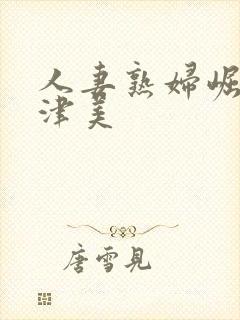 人妻熟婦崛
津美
唐雪見